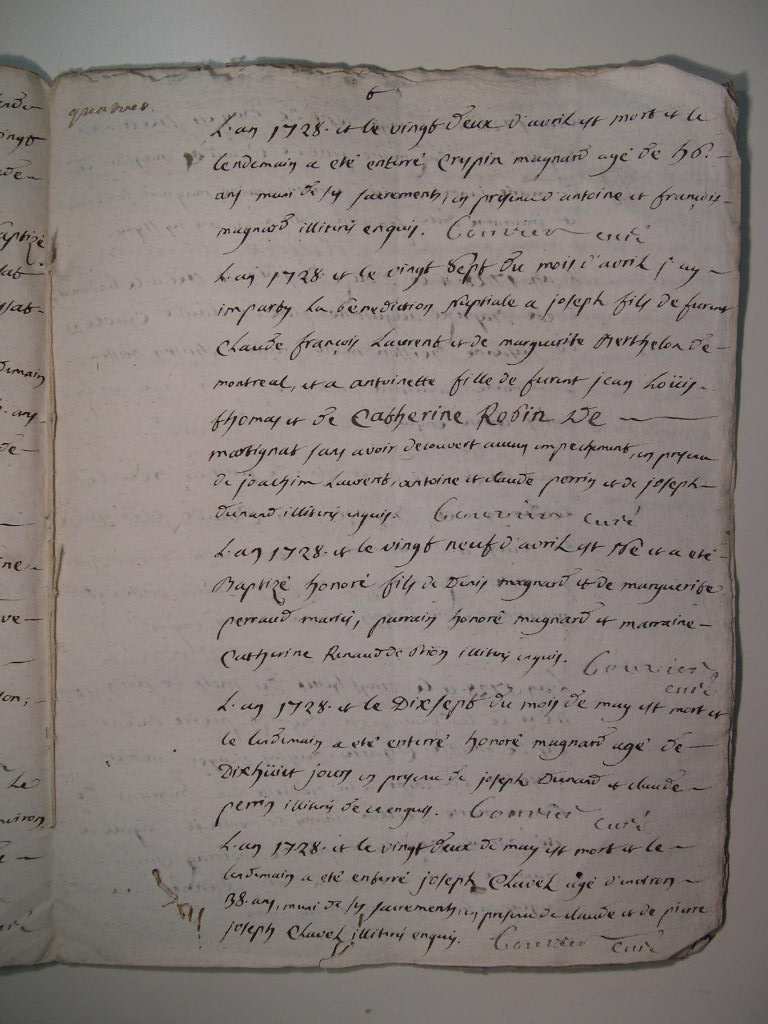 6
L'an 1728. et le vingt deux d'avril est mort et le
lendemain a eté enterré Crypin magnard agé de
ans muni de sy sacrements, en presence d'antoine et françois
magnard illiterés enquis. Gouvrier curé
L'an 1728. et le vingt sept du mois d'avril j'ay
imparty La benediction Nuptiale a joseph fils de furent
Claude françois Laurent et de marguerite Berthelon de
montreal, et a antoinette fille de furent jean Loüis
thomas et de Catherine Robin De
martignat sans avoir decouvert aucun impechement, en presence
de joachim Laurent, antoine et claude perrin et de joseph
Dunard illiterés enquis. Gouvrier curé
L'an 1728. et le vingt neuf d'avril est Né et a eté
Baptizé honoré fils de Denis magnard et de marguerite
perraud mariés, parrain honoré magnard et marraine
Catherine Renaud de Brion illiterés enquis. Gouvrier
curé
L'an 1728. et le Dixsept du mois de may est mort et
le lendemain a eté enterré honoré magnard agé de
Dixhüiet jours en presence de joseph Dunard et claude
perrin illiterés de ce enquis. Gouvrier curé
L'an 1728. et le vingt deux de may est mort et le
lendemain a eté enterré joseph Clavel agé d'environ
38. ans, muni de sy sacrements, en presence de claude et de pierre
joseph Clavel illiterés enquis. Gouvrier curé